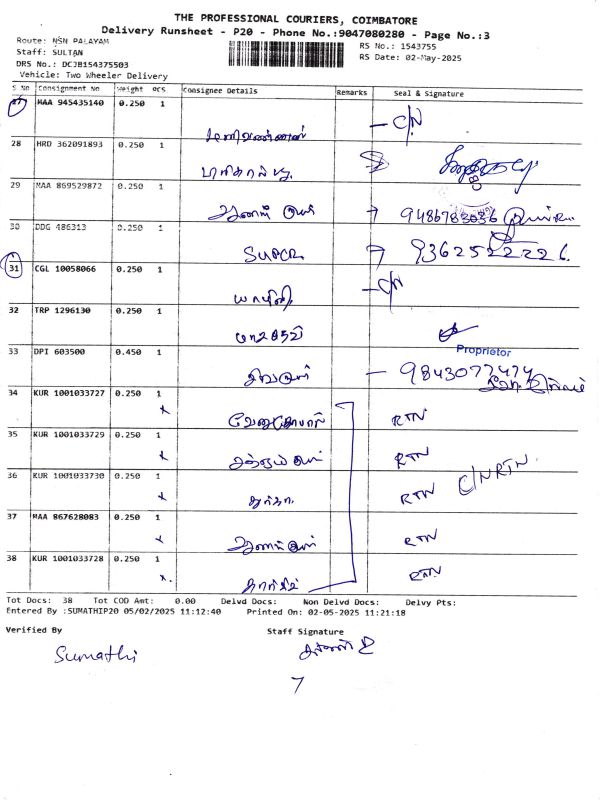 THE PROFESSIONAL COURIERS, COIMBATORE
Delivery Runsheet - P20 - Phone No.:9047080280 - Page No.:3
Route: NSN PALAYAM
RS No.: 1543755
Staff: SULTAN
RS Date: 02-May-2025
DRS No.: DCJB154375503
Vehicle: Two Wheeler Delivery
S No Consignment No Weight PCS Consignee Details Remarks Seal & Signature
27 MAA 945435140 0.250 1
மணிவண்ணன் - C/N
28 HRD 362091893 0.250 1
29 MAA 869529872 0.250 1
ஆனந்த் குமார் → 9486783036
30 DDG 486313 0.250 1
SUPER → 9362522226.
31 CGL 10058066 0.250 1
யாமினி - C/N
32 TRP 1296130 0.250 1
Proprietor
33 DPI 603500 0.450 1
- 9843077474
34 KUR 1001033727 0.250 1
x வேணுகோபால் RTN
35 KUR 1001033729 0.250 1
x RTN
36 KUR 1001033730 0.250 1
x துர்கா RTN C/N RTN.
37 MAA 867628083 0.250 1
x ஆனந்த் குமார் RTN
38 KUR 1001033728 0.250 1
x. கார்த்திக் RTN
Tot Docs: 38 Tot COD Amt: 0.00 Delvd Docs: Non Delvd Docs: Delvy Pts:
Entered By :SUMATHIP20 05/02/2025 11:12:40 Printed On: 02-05-2025 11:21:18
Verified By Staff Signature
Sumathi
7